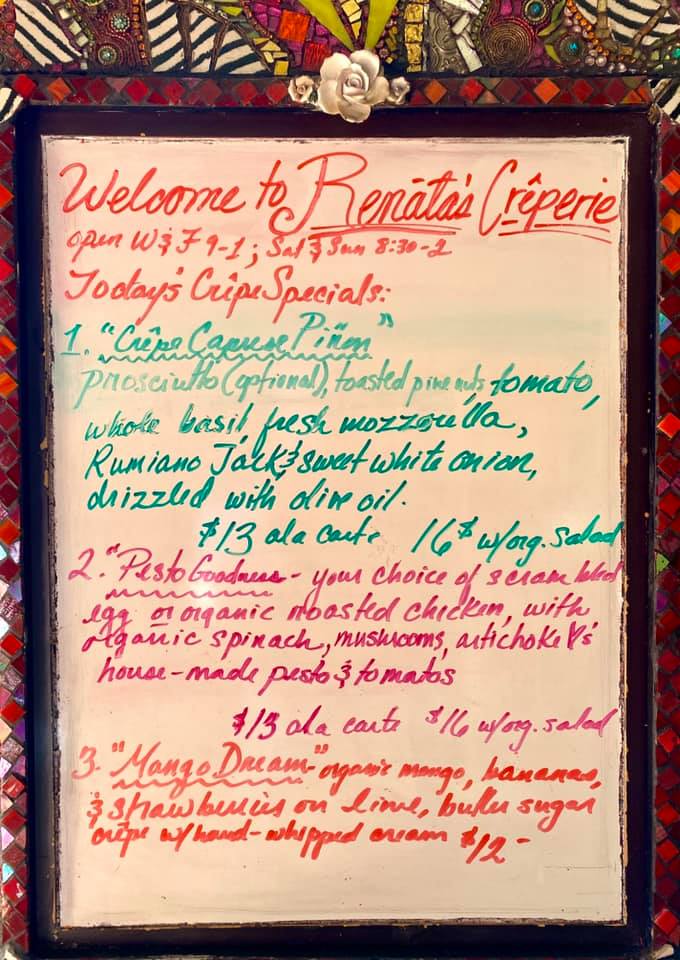 Welcome to Renāta's Crêperie
open W & F 9-1; Sat & Sun 8:30-2
Today's Crêpe Specials:
1. "Crêpe Caprese Piñon"
prosciutto (optional), toasted pine nuts tomato,
whole basil, fresh mozzorella,
Rumiano Jack & sweet white onion,
drizzled with olive oil.
$13 ala carte 16$ w/org. salad
2. "Pesto Goodness - your choice of scrambled
egg or organic roasted chicken, with
organic spinach, mushrooms, artichoke ♥'s
house-made pesto & tomatos
$13 ala carte $16 w/org. salad
3. "Mango Dream-" organic mango, bananas,
& strawberries on lime, butter sugar
crêpe w/ hand-whipped cream $12-